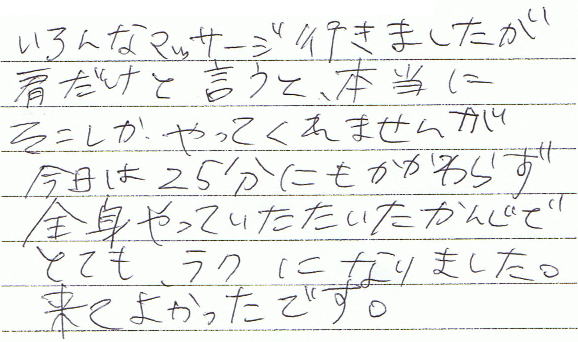 いろんなマッサージ行きましたが
肩だけと言うと、本当に
そこしか、やってくれませんが
今日は25分にもかかわらず
全身やっていただいたかんじで
とても、ラクになりました。
来てよかったです。